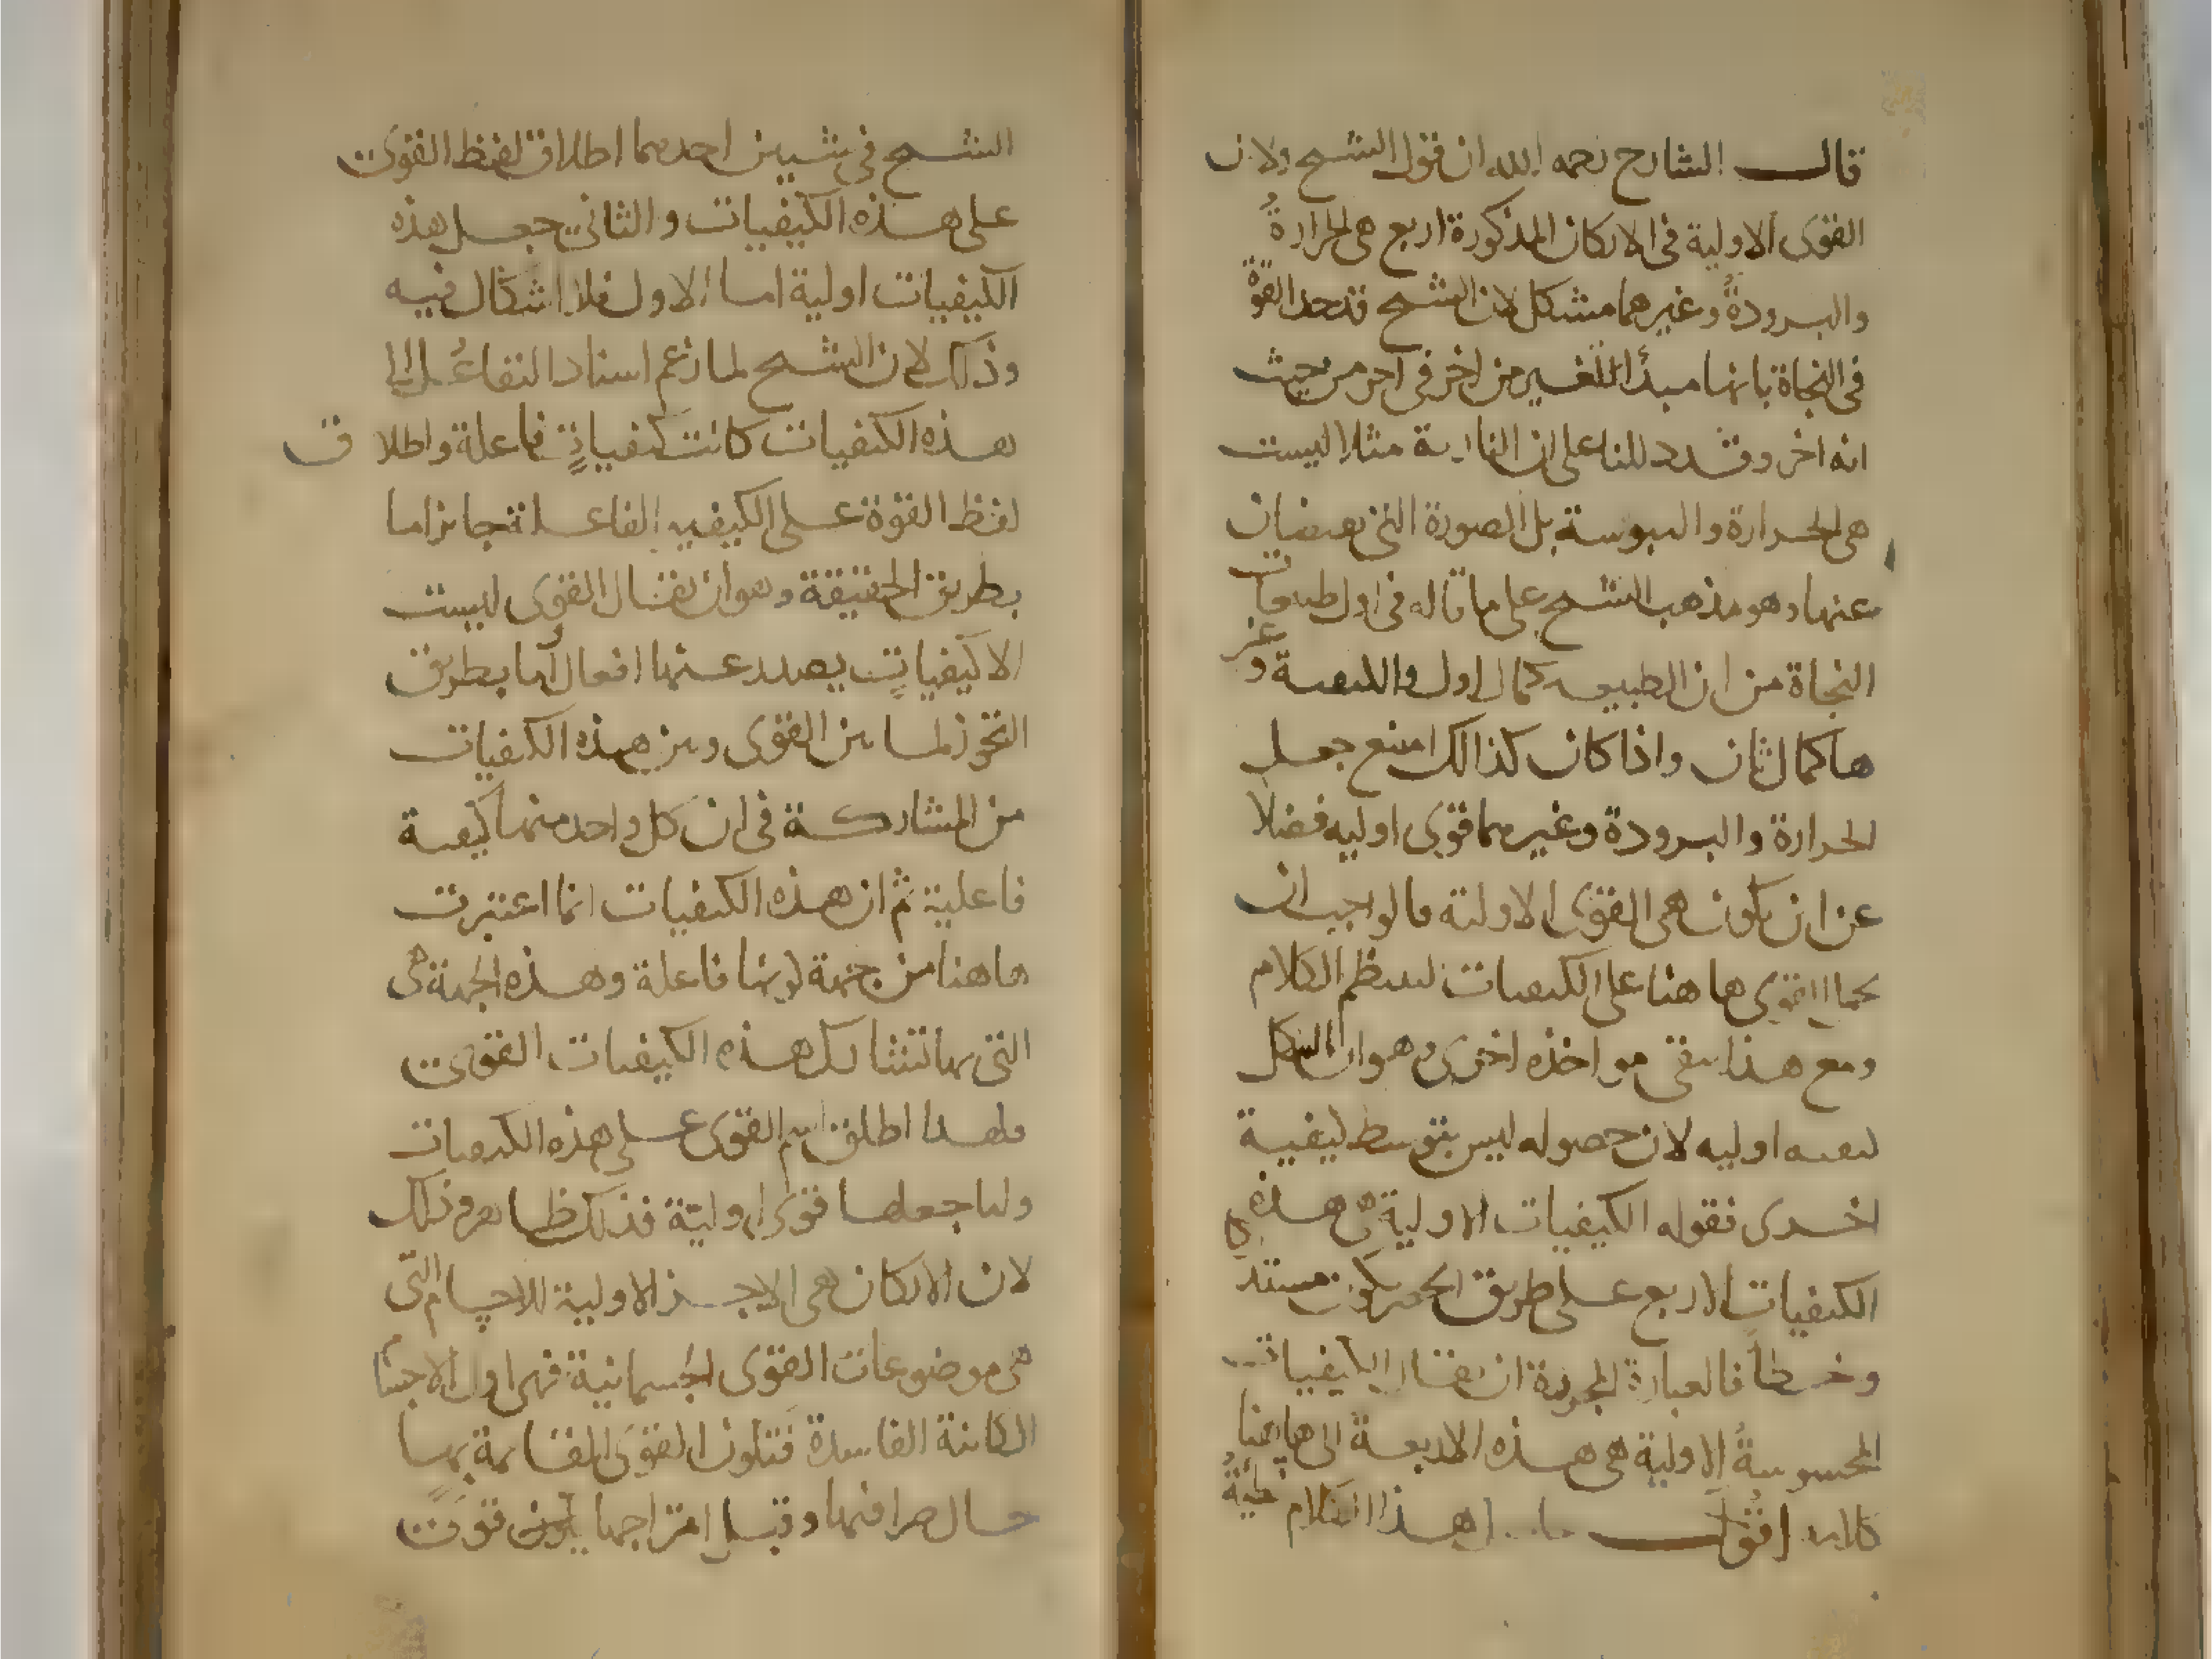 قال الشارح رحمه الله ان قول الشيح ولان
القوى الاولية فى الاركان المذكورة اربع هى الحرارةُ
والبرودةُ وغيرهما مشكل لان الشيح قد حد القوة
فى النجاة بانها مبدأ التغيير من اخر فى اخر من حيث
انه اخر وقد دللنا على ان النارية مثلا ليست
هى الحرارة واليبوسة بل الصورة التى يفيضان
عنها وهو مذهب الشيح على ما قاله فى اول طبيعيات
النجاة من ان الطبيعه كمال اول والكيفية وغير
ها كمال ثان واذا كان كذالك امتنع جعل
الحرارة والبرودة وغيرهما قوى اوليه فضلا
عن ان يكون هى القوى الاولية فالواجب ان
يحمل القوى هاهنا على الكيفيات لينتظم الكلام
ومع هذا يبقى مواخذه اخرى وهو ان الشكل
كيفيه اوليه لان حصوله ليس بتوسط كيفية
اخرى فقوله الكيفيات الاولية هى هذه
الكيفيات الاربع على طريق الحصر يكون مستدركا
وخطأ فالعبارة المجردة ان يقال الكيفيات
المحسوسةُ الاولية هى هذه الاربعة الى هاهنا
كلامه اقول هذا الكلام
الشيح فى شيين احدهما اطلاق لفظ القوى
على هذه الكيفيات والثانى جعل هذه
الكيفيات اولية اما الاول فلا اشكال فيه
وذلك لان الشيح لما زعم اسناد التفاعُل الى
هذه الكيفيات كانت كيفياتٍ فاعلة واطلاق
لفظ القوة على الكيفيه الفاعلة جايز اما
بطريق الحقيقة وهو ان يقال القوى ليست
الا كيفياتٍ يصدر عنها افعال اما بطريق
التجوز لما بين القوى وبين هذه الكيفيات
من المشاركة فى ان كل واحد منها كيفية
فاعلية ثم ان هذه الكيفيات انما اعتبرت
هاهنا من جهة كونها فاعلة وهذه الجهة هى
التى بها تتشارك هذه الكيفيات القوى
فلهذا اطلق اسم القوى على هذه الكيفيات
واما جعلها قوى اوليّة فذلك ظاهر وذلك
لان الاركان هى الاجزا الاولية للاجسام التى
هى موضوعات القوى الجسمانية فهى اول الاجسام
الكاينة الفاسدة فتكون القوى القائمة بها
حال صرافتها وقبل امتزاجها يكون قوى